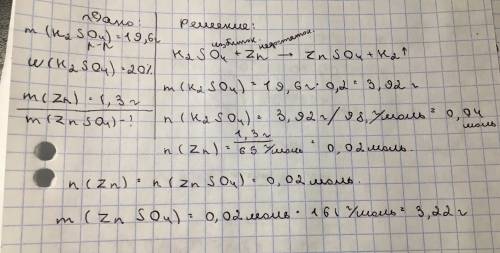 Дано:
m (K₂SO₄) = 19,6г
р-р
w (K₂SO₄) = 20%
m (Zn) = 1,3 г
m (Zn SO₄) - ?
Решение:
избыток недостаток
K₂SO₄ + Zn → Zn SO₄ + K₂↑
m (K₂SO₄) = 19,6г · 0,2 = 3,92 г
n (K₂SO₄) = 3,92 г / 98 г/моль = 0,04 моль
n (Zn) = 1,3 г / 65 г/моль = 0,02 моль.
n (Zn) = n (Zn SO₄) = 0,02 моль.
m (Zn SO₄) = 0,02 моль · 161 г/моль = 3,22 г